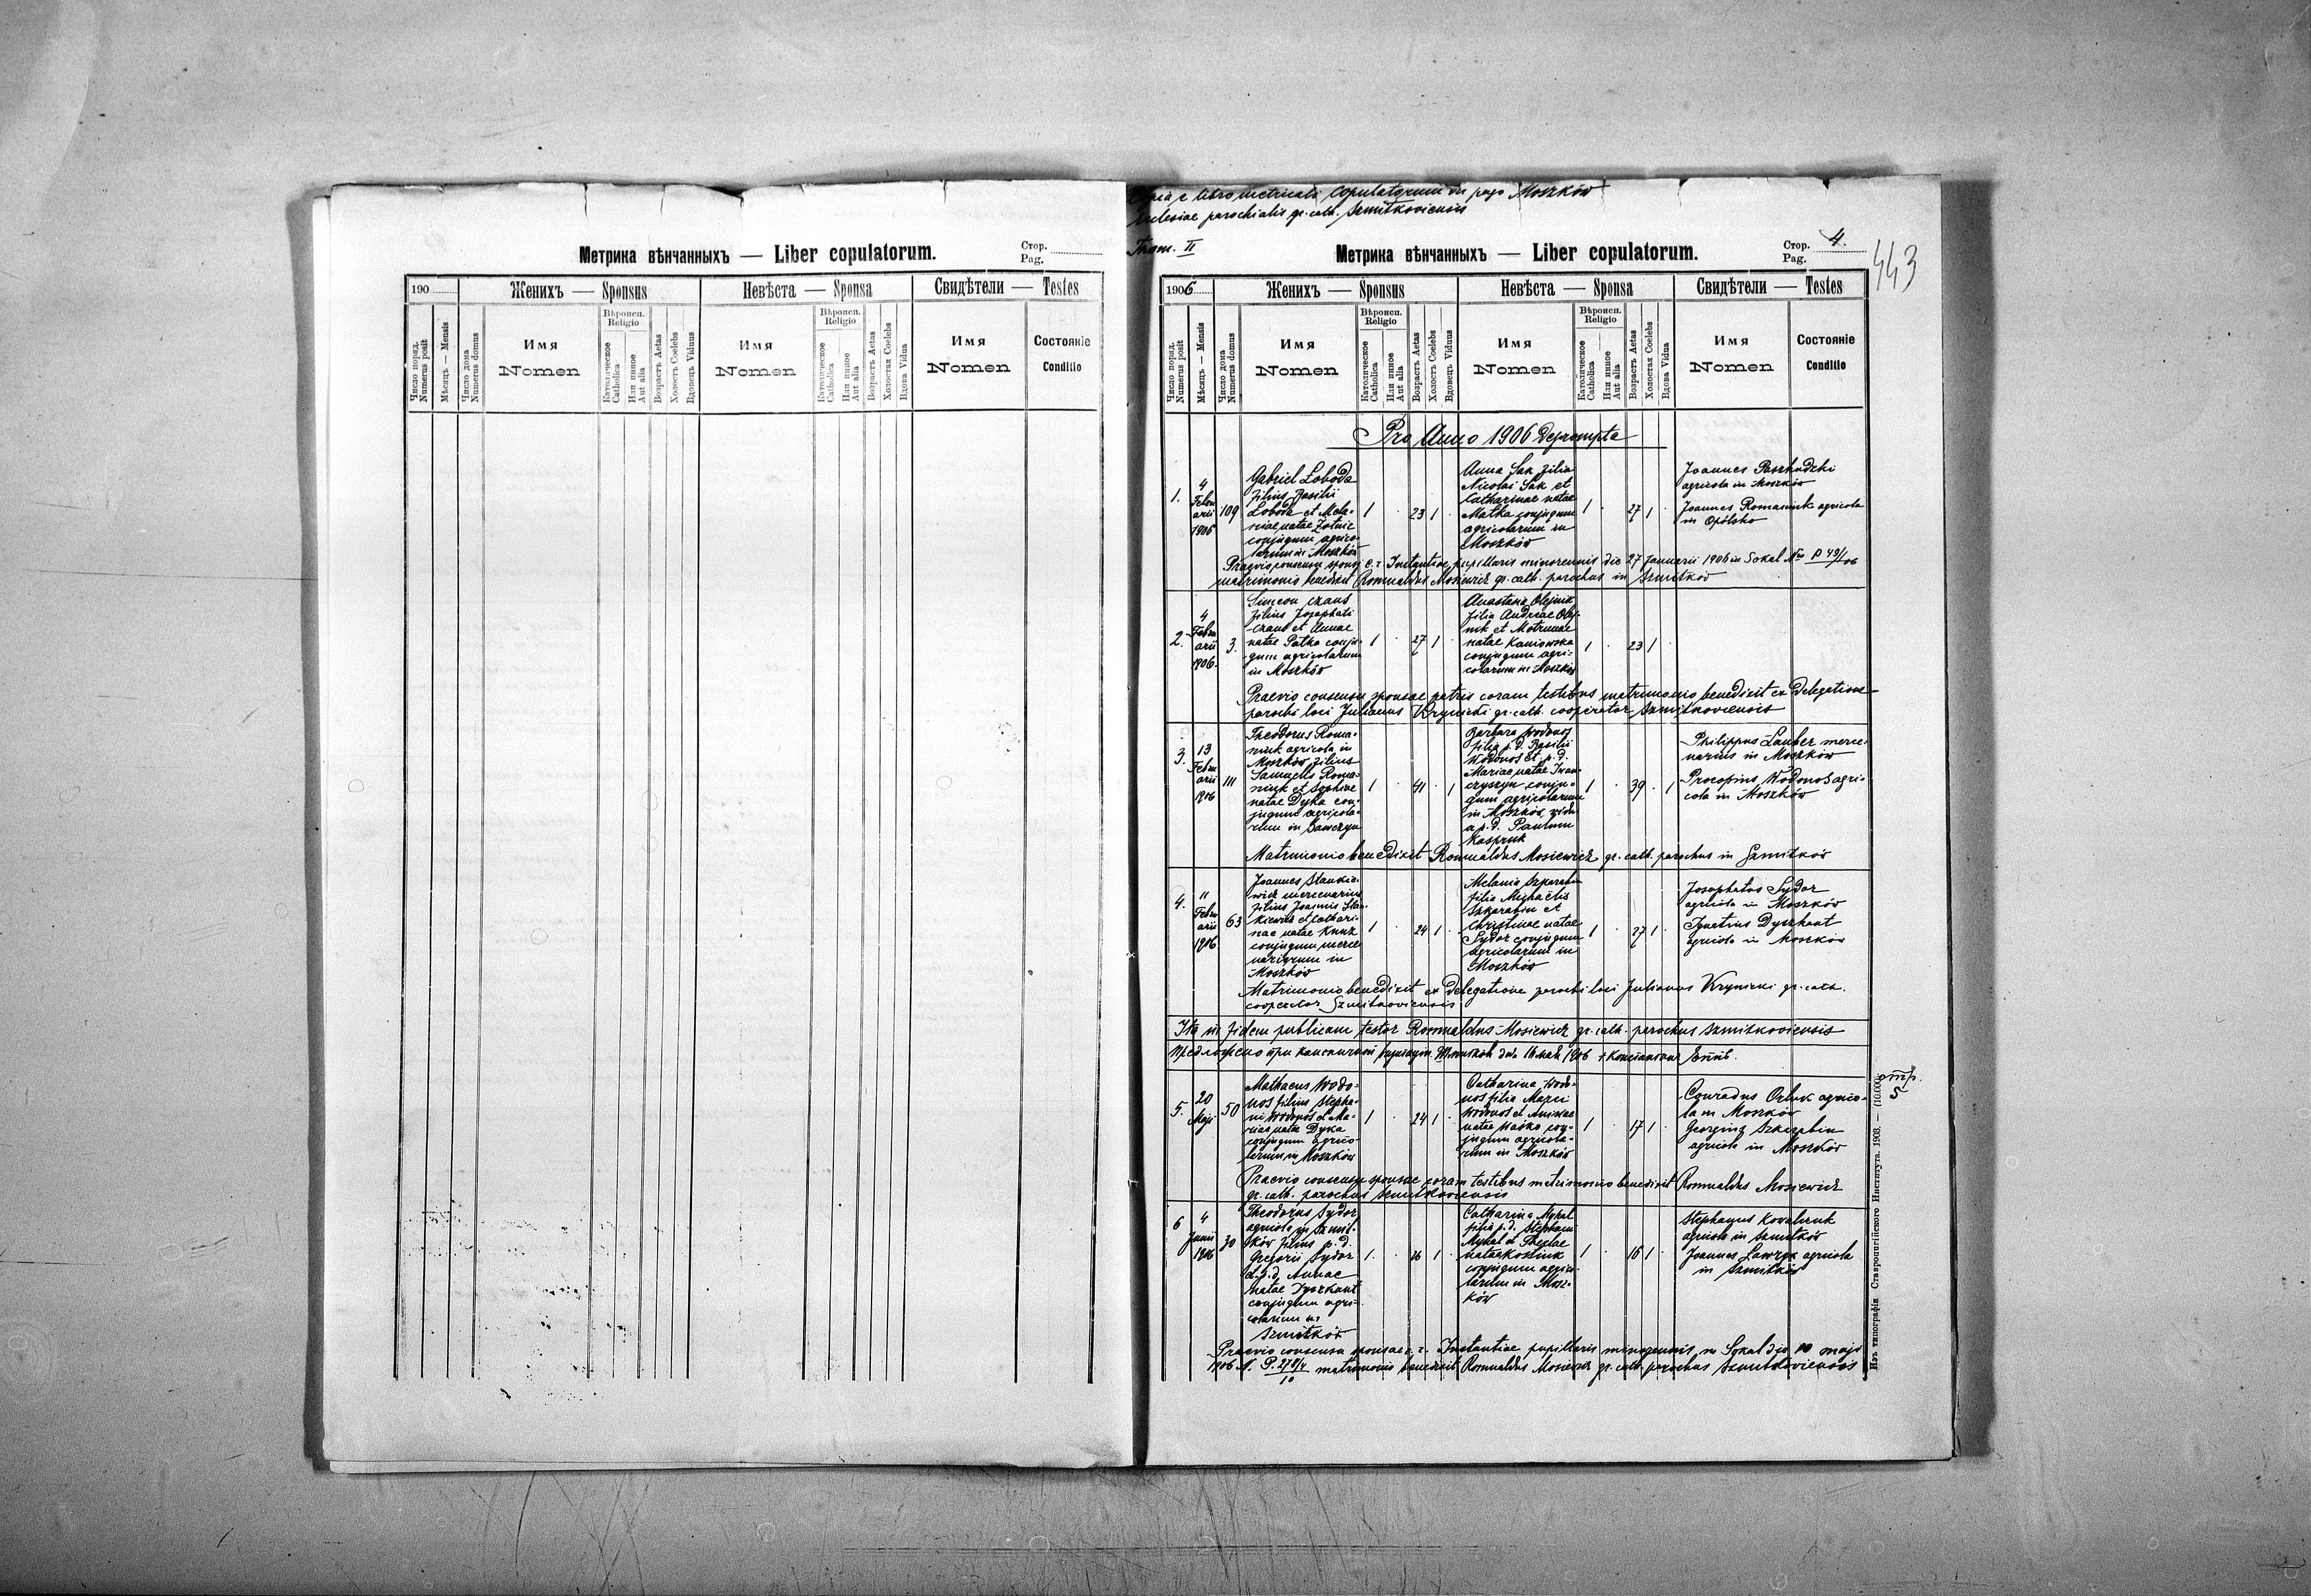 Метрика вѣнчанныхъ — Liber copulatorum.
Стор.
Pag.
190
Женихъ — Sponsus
Невѣста — Sponsa
Свидѣтели — Testes
Число поряд.
Numerus posit
Мѣсяць — Mensis
Число дома
Numerus domus
Имя
Nomen
Вѣроисп.
Religio
Католическое
Catholica
Или иное
Aut alia
Возрастъ Aetas
Холостъ Coelebs
Вдовець Viduus
Имя
Nomen
Вѣроисп.
Religio
Католическое
Catholica
Или иное
Aut alia
Возрастъ Aetas
Холостая Coelebs
Вдова Vidua
Имя
Nomen
Состояніе
Conditio
libro metricali Copulatorum in pago Moszków
parochialis gr. cath. Szmitkoviensis
Tom. II
Метрика вѣнчанныхъ — Liber copulatorum.
Стор.
Pag.
4.
443
1906
Женихъ — Sponsus
Невѣста — Sponsa
Свидѣтели — Testes
Число поряд.
Numerus posit
Мѣсяць — Mensis
Число дома
Numerus domus
Имя
Nomen
Вѣроисп.
Religio
Католическое
Catholica
Или иное
Aut alia
Возрастъ Aetas
Холостъ Coelebs
Вдовець Viduus
Имя
Nomen
Вѣроисп.
Religio
Католическое
Catholica
Или иное
Aut alia
Возрастъ Aetas
Холостая Coelebs
Вдова Vidua
Имя
Nomen
Состояніе
Conditio
Pro Anno 1906 Deprompta
1.
4
Febru
arii
1906
109
Gabriel Loboda
filius Basilii
Loboda et Mela-
niae natae
conjugum agrico-
larum in Moszków
1
23
1
Anna Sak filia
Nicolai Sak et
Catharinae natae
Matka conjugum
agricolarum in
Moszków
1
27
1
Joannes
agricola in Moszków
Joannes Romaniuk agricola
in Opólsko
Praevio consensu sponsi c. r. Instantiae pupillaris minorennis die 27 Januarii 1906 in Sokal
matrimonio benedixit Romualdus Mosiewicz gr. cath. parochus in Szmitków
2.
4
Febru
arii
1906.
3.
Simeon
filius Josaphati
et Annae
natae Patko conju-
gum agricolarum
in Moszków
1
27
1
Anastasia Olejnik
filia Andreae Olej-
nik et Motrunae
natae Kaniowska
conjugum agri-
colarum in Moszków
1
23
1
Praevio consensu sponsae patris coram testibus matrimonio benedixit ex Delegatione
parochi loci Julianus Krynicki gr. cath. cooperator Szmitkoviensis
3.
13
Febru
arii
1906
111
Theodorus Roma-
niuk agricola in
Moszków filius
Samuelis Roma-
niuk et Sophiae
natae Dyka con-
jugum agricola-
rum in Sawczyn
1
41
1
Barbara Wodonos
filia p. d. Basilii
Wodonos et p. d.
Mariae natae Iwan-
czyszyn conju-
gum agricolarum
in Moszków, vidu
a p. d. Paulum
Kaspruk
1
39
1
Philippus Lauber merce-
narius in Moszków
Procopius Wodonos agri-
cola in Moszków
Matrimonio benedixit Romualdus Mosiewicz gr. cath. parochus in Szmitków
4.
11
Febru
arii
1906
63
Joannes Stankie-
wicz mercenarius
filius Joannis Stan-
kiewicz et Cathari-
nae natae
conjugum merce
nariorum in
Moszków
1
24
1
Melania Szkarabin
filia Michaëlis
Szkarabin et
Christinae natae
Sydor conjugum
agricolarum in
Moszków
1
27
1
Josaphatus Sydor
agricola in Moszków
Ignatius Dyszkant
agricola in Moszków
Matrimonio benedixit ex Delegatione parochi loci Julianus Krynicki gr. cath.
cooperator Szmitkoviensis
Ita in fidem publicam testor Romualdus Mosiewicz gr. cath. parochus Szmitkoviensis
1906
5.
20
Maji
50
Mathaeus Wodo-
nos filius Stepha-
ni Wodonos et Ma-
riae natae Dyka
conjugum agrico
larum in Moszków
1
24
1
Catharina Wodo-
nos filia Marci
Wodonos et Anisiae
natae conju-
gum agricola-
rum in Moszków
1
17
1
Conradus agrico-
la in Moszków
Georgius Szkarabin
agricola in Moszków
стр.
5
Praevio consensu sponsae coram testibus matrimonio benedixit Romualdus Mosiewicz
gr. cath. parochus Szmitkoviensis
6
4
Junii
1906
30
Theodorus Sydor
agricola in Szmit-
ków filius p. d.
Gregorii Sydor
et p. d. Annae
natae Dyszkant
conjugum agri-
colarum in
Szmitków
1.
1
Catharina Mykal
filia p. d. Stephani
Mykal et Theclae
natae
conjugum agrico-
larum in Mosz-
ków
1
16
1
Stephanus Kovalczuk
agricola in Szmitków
Joannes agricola
in Szmitków
Praevio consensu sponsae c. r. Instantiae pupillaris minorennis in Sokal die 10 maji
1906 matrimonio benedixit Romualdus Mosiewicz gr. cath. parochus Szmitkoviensis
Изъ типографіи Ставропигійского Института. 1903. — (10.000).